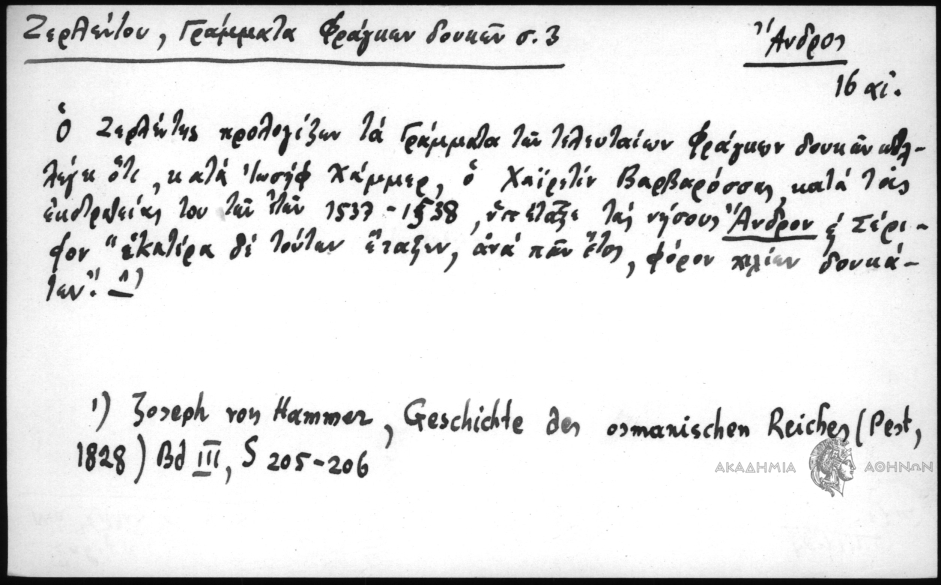 Ζερλέντου, Γράμματα Φράγκων δουκῶν σ. 3
Ἄνδρος
16 αἰ.
Ὁ Ζερλέντης προλογίζων τὰ Γράμματα τῶν τελευταίων Φράγκων δουκῶν κτλ-
λέγει ὅτι, κατὰ Ἰωσὴφ Χάμμερ, ὁ Χαϊρεττὶν Βαρβαρόσσας, κατὰ τὰς
ἐκστρατείας του τῶν ἐτῶν 1537-1538, ὑπέταξε τὰς νήσους Ἄνδρον ἐ Σέρι-
φον "ἑκατέρᾳ δὲ τούτων ἔταξεν, ἀνὰ πᾶν ἔτος, φόρον χιλίων δουκά-
των". 1)
1) Joseph von Hammer, Geschichte des osmanischen Reiches (Pest,
1828) Bd III, S 205-206
ΑΚΑΔΗΜΙΑ ΑΘΗΝΩΝ